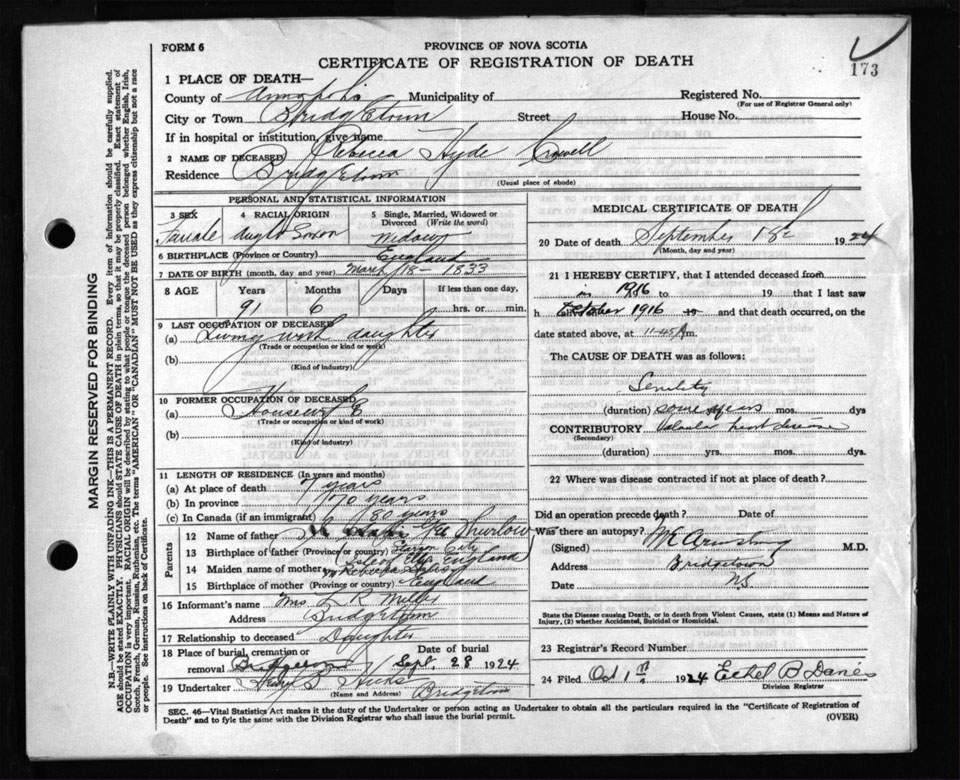 FORM 6
PROVINCE OF NOVA SCOTIA
CERTIFICATE OF REGISTRATION OF DEATH
173
1 PLACE OF DEATH—
County of Annapolis Municipality of Registered No.
(For use of Registrar General only)
City or Town Bridgetown Street House No.
If in hospital or institution, give name
2 NAME OF DECEASED Rebecca Hyde Crowell
Residence Bridgetown
(Usual place of abode)
PERSONAL AND STATISTICAL INFORMATION
3 SEX Female
4 RACIAL ORIGIN Anglo Saxon
5 Single, Married, Widowed or Divorced (Write the word) Widow
6 BIRTHPLACE (Province or Country) England
7 DATE OF BIRTH (month, day and year) March 18- 1833
8 AGE Years Months Days If less than one day,
91 6 hrs. or min.
9 LAST OCCUPATION OF DECEASED
(a) Living with daughter
(Trade or occupation or kind of work)
(b)
(Kind of industry)
10 FORMER OCCUPATION OF DECEASED
(a) Housewife
(Trade or occupation or kind of work)
(b)
(Kind of industry)
11 LENGTH OF RESIDENCE (In years and months)
(a) At place of death 7 years
(b) In province 70 years
(c) In Canada (if an immigrant) 80 years
Parents
12 Name of father Thurlow
13 Birthplace of father (Province or country) England
14 Maiden name of mother Rebecca
15 Birthplace of mother (Province or country) England
16 Informant's name Mrs L R
Address Bridgetown
17 Relationship to deceased Daughter
18 Place of burial, cremation or removal Bridgetown
Date of burial Sept. 28 1924
19 Undertaker Hicks Bridgetown
(Name and Address)
MEDICAL CERTIFICATE OF DEATH
20 Date of death September 1924
(Month, day and year)
21 I HEREBY CERTIFY, that I attended deceased from
in 1916 to 19 that I last saw
h October 1916 19 and that death occurred, on the
date stated above, at 11-45 A m.
The CAUSE OF DEATH was as follows:
Senility
(duration) some years mos. dys
CONTRIBUTORY Valvular heart disease
(Secondary)
(duration) yrs. mos. dys.
22 Where was disease contracted if not at place of death?
Did an operation precede death? Date of
Was there an autopsy?
(Signed) M E Armstrong M.D.
Address Bridgetown
Date NS
State the Disease causing Death, or in death from Violent Causes, state (1) Means and Nature of Injury, (2) whether Accidental, Suicidal or Homicidal.
23 Registrar's Record Number
24 Filed Oct 1st 1924 Ethel B Davies
Division Registrar
SEC. 46—Vital Statistics Act makes it the duty of the Undertaker or person acting as Undertaker to obtain all the particulars required in the "Certificate of Registration of
Death" and to fyle the same with the Division Registrar who shall issue the burial permit.
(OVER)
MARGIN RESERVED FOR BINDING
N.B.—WRITE PLAINLY WITH UNFADING INK—THIS IS A PERMANENT RECORD. Every item of information should be carefully supplied.
AGE should be stated EXACTLY. PHYSICIANS should STATE CAUSE OF DEATH in plain terms, so that it may be properly classified. Exact statement of
OCCUPATION is very important. RACIAL ORIGIN will be described by stating to what people or tongue the deceased person belonged whether English, Irish,
Scotch, French, German, Russian, Ruthenian, etc. The terms "AMERICAN" OR "CANADIAN" MUST NOT BE USED as they express citizenship but not a race
or people. See instructions on back of Certificate.